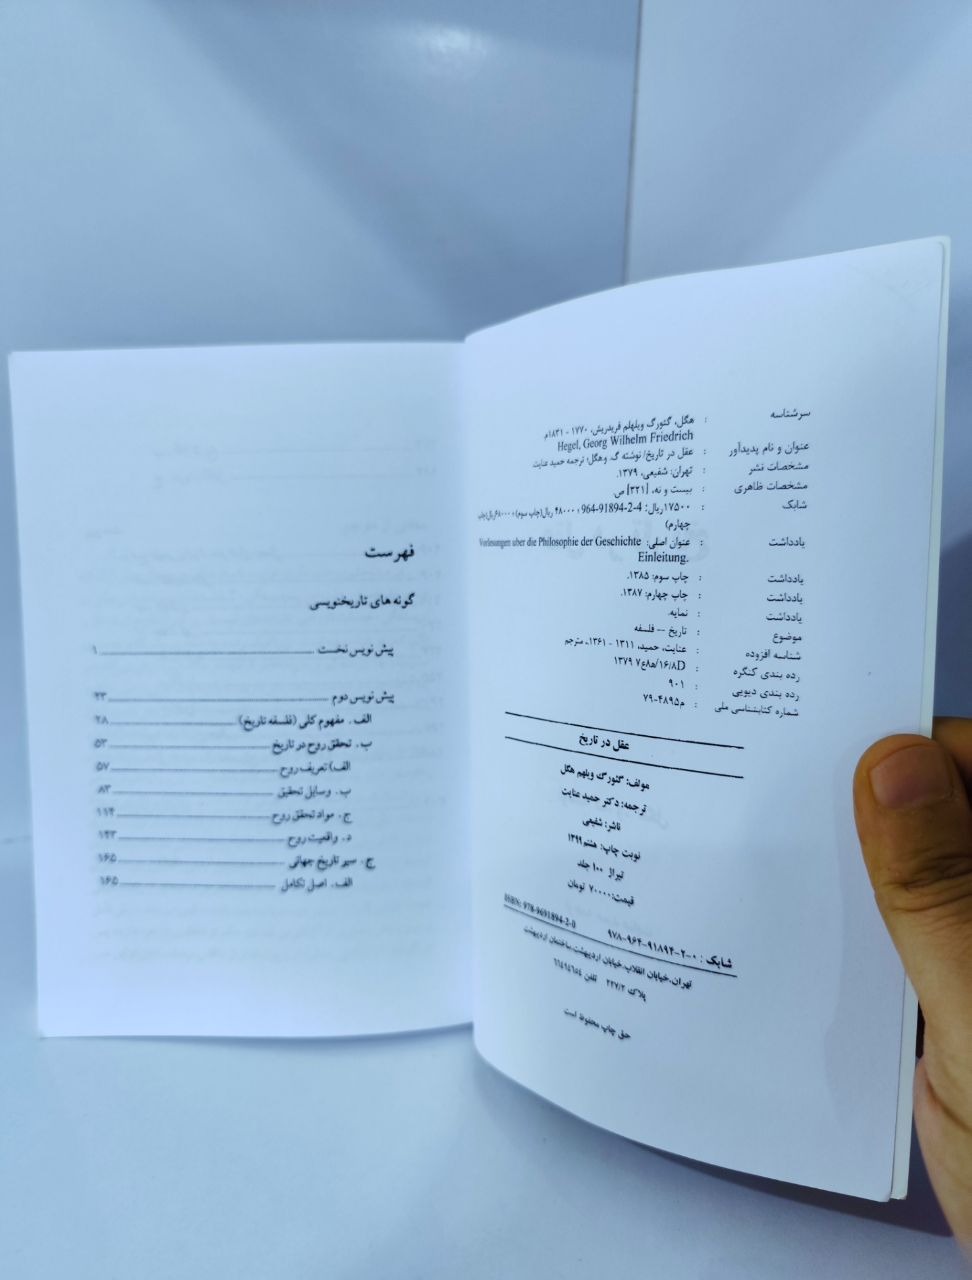 سرشناسه : هگل، گئورگ ویلهلم فریدریش، ۱۷۷۰ - ۱۸۳۱م.
Hegel, Georg Wilhelm Friedrich
عنوان و نام پدیدآور : عقل در تاریخ/ نوشته گ. و.هگل؛ ترجمه حمید عنایت
مشخصات نشر : تهران: شفیعی، ۱۳۷۹.
مشخصات ظاهری : بیست و نه، [۳۲۱] ص.
شابک : ۱۷۵۰۰ریال؛ 964-91894-2-4 ؛ ۴۸۰۰۰ ریال(چاپ سوم) ؛ ۶۸۰۰۰ریال(چاپ
چهارم)
یادداشت : عنوان اصلی: Vorlesungen uber die Philosophie der Geschichte
Einleitung.
یادداشت : چاپ سوم: ۱۳۸۵.
یادداشت : چاپ چهارم: ۱۳۸۷.
یادداشت : نمایه.
موضوع : تاریخ -- فلسفه
شناسه افزوده : عنایت، حمید، ۱۳۱۱ - ۱۳۶۱، مترجم
رده بندی کنگره : D۱۶/۸/ه‍۸ع۷ ۱۳۷۹
رده بندی دیویی : ۹۰۱
شماره کتابشناسی ملی : م۴۸۹۵-۷۹
عقل در تاریخ
مولف: گئورگ ویلهم هگل
ترجمه: دکتر حمید عنایت
ناشر: شفیعی
نوبت چاپ: هفتم ۱۳۹۹
تیراژ ۱۰۰ جلد
قیمت: ۷۰۰۰۰ تومان
شابک : ۰-۲-۹۱۸۹۴-۹۶۴-۹۷۸ ISBN: 978-9691894-2-0
تهران،خیابان انقلاب،خیابان اردیبهشت،ساختمان اردیبهشت
پلاک ۲۲۷/۲ تلفن ۶۶۴۹۴۶۵۴
حق چاپ محفوظ است
فهرست
گونه های تاریخنویسی
پیش نویس نخست ۱
پیش نویس دوم ۲۳
الف. مفهوم کلی (فلسفه تاریخ) ۲۸
ب. تحقق روح در تاریخ ۵۲
الف) تعریف روح ۵۷
ب. وسایل تحقیق ۸۳
ج. مواد تحقق روح ۱۱۴
د. واقعیت روح ۱۴۳
ج. سیر تاریخ جهانی ۱۶۵
الف. اصل تکامل ۱۶۵